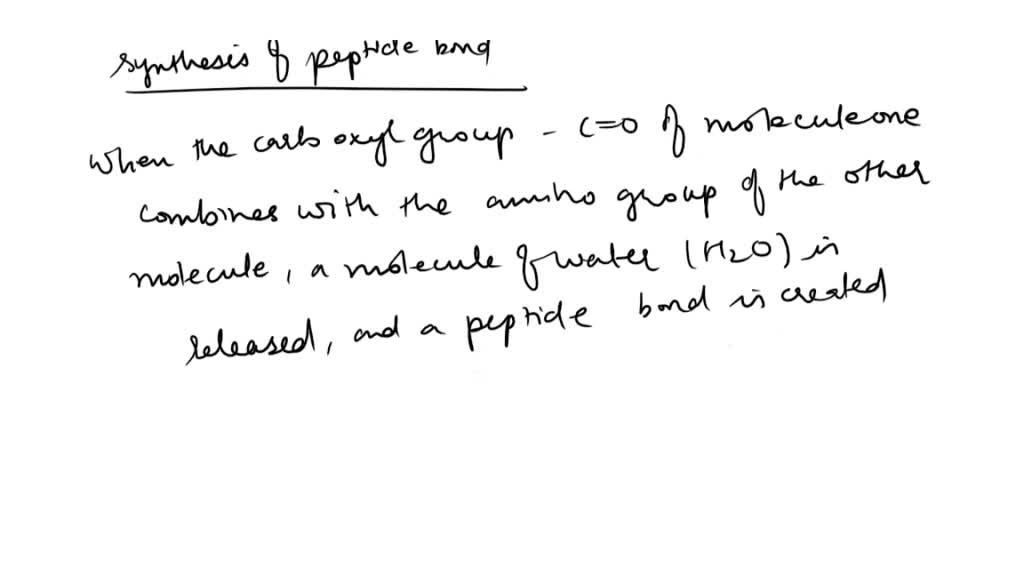 synthesis of peptide bond
When the carboxyl group - C=O of molecule one
combines with the amino group of the other
molecule, a molecule of water (H2O) is
released, and a peptide bond is created